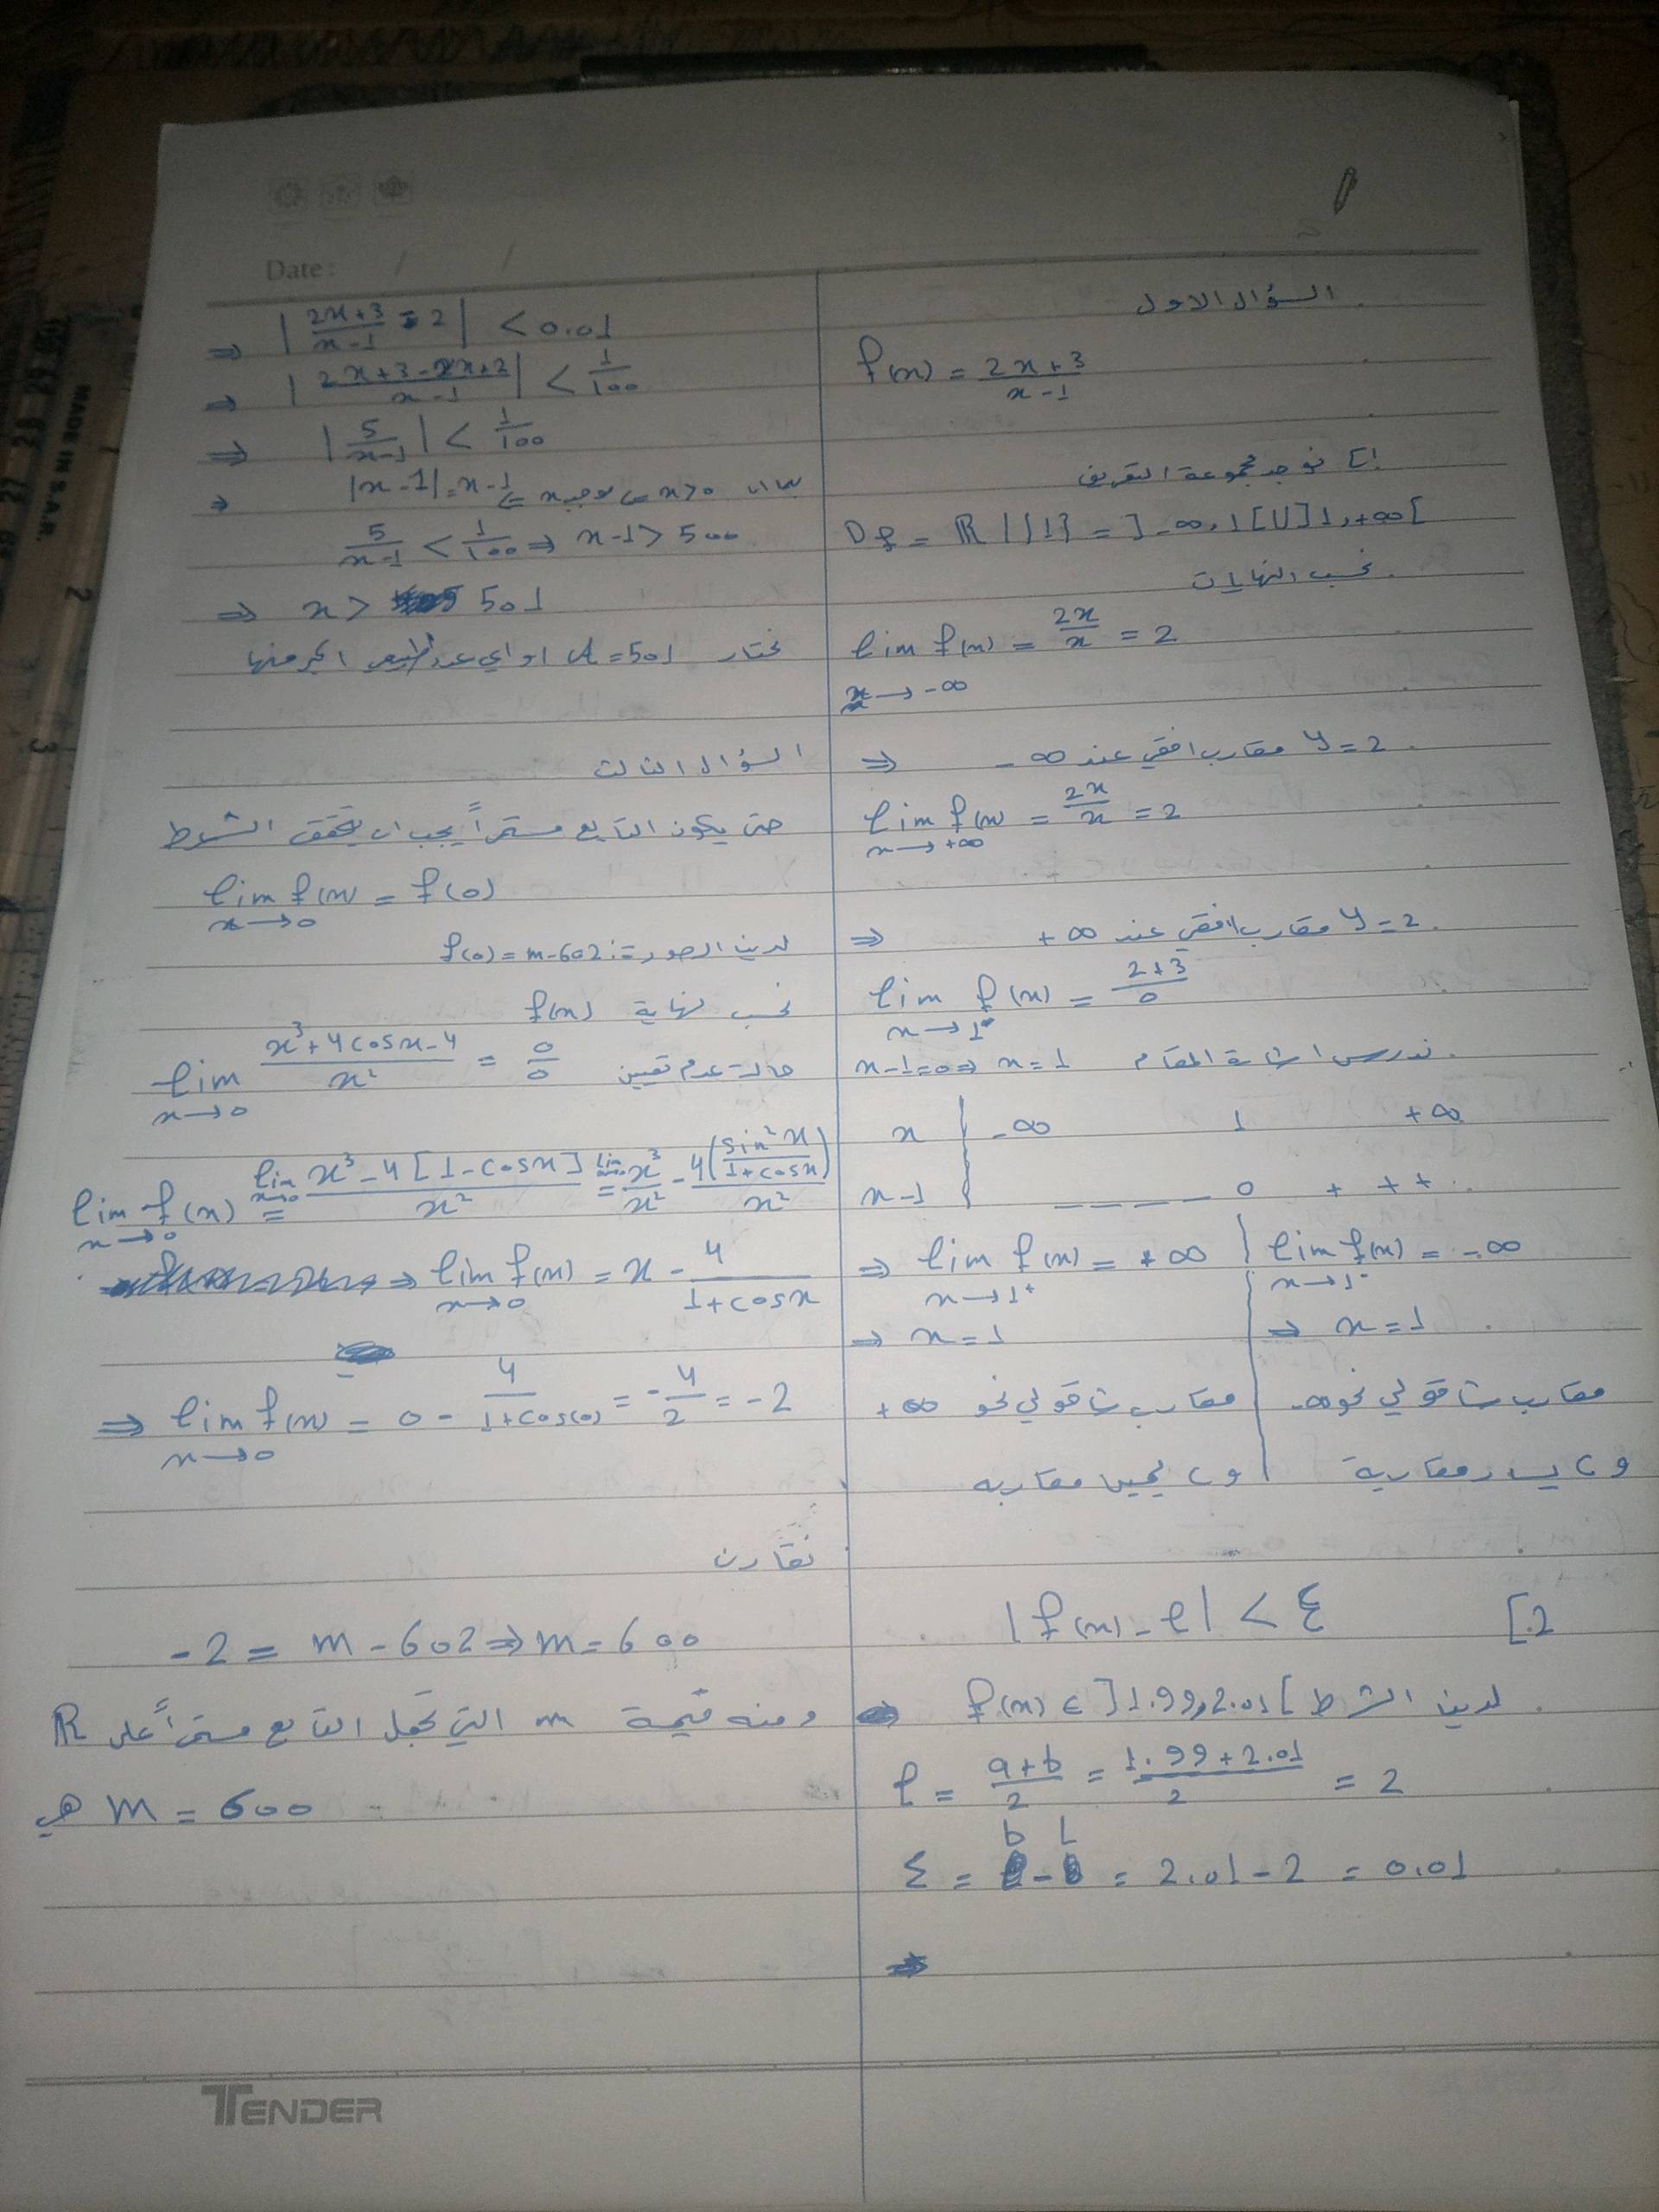 Date: / /
السؤال الاول
f(x) = \frac{2x+3}{x-1}
1] نوجد مجموعة التعريف
Df = R \ {1} = ]-∞, 1[ U ]1, +∞[
نحسب النهايات
lim_{x→-∞} f(x) = \frac{2x}{x} = 2
⇒ y = 2 مقارب افقي عند -∞
lim_{x→+∞} f(x) = \frac{2x}{x} = 2
⇒ y = 2 مقارب افقي عند +∞
lim_{x→1} f(x) = \frac{2+3}{0}
ندرس اشارة المقام x-1=0 ⇒ x=1
x | -∞ 1 +∞
x-1 | - - - - 0 + + +
⇒ lim_{x→1⁺} f(x) = +∞ | lim_{x→1⁻} f(x) = -∞
⇒ x = 1 | ⇒ x = 1
مقارب شاقولي نحو +∞ | مقارب شاقولي نحو -∞
و c يمين مقاربه | و c يسار مقاربة
2] |f(x) - l| < ε
لدينا الشرط f(x) ∈ ]1.99, 2.01[
l = \frac{a+b}{2} = \frac{1.99+2.01}{2} = 2
ε = b - L = 2.01 - 2 = 0.01
⇒ |\frac{2x+3}{x-1} - 2| < 0.01
⇒ |\frac{2x+3-2x+2}{x-1}| < \frac{1}{100}
⇒ |\frac{5}{x-1}| < \frac{1}{100}
⇒ بما ان x>0 موجبة x ⇒ |x-1| = x-1
\frac{5}{x-1} < \frac{1}{100} ⇒ x-1 > 500
⇒ x > 501
نختار A = 501 او اي عدد اكبر منها
السؤال الثالث
حتى يكون التابع مستمراً يجب ان يحقق الشرط
lim_{x→0} f(x) = f(0)
لدينا الصورة: f(0) = m-602
نحسب نهاية f(x)
lim_{x→0} \frac{x³+4cosx-4}{x²} = \frac{0}{0} حالة عدم تعيين
lim_{x→0} f(x) = lim_{x→0} \frac{x³-4[1-cosx]}{x²} = lim \frac{x³}{x²} - \frac{4(\frac{sin²x}{1+cosx})}{x²}
⇒ lim_{x→0} f(x) = x - \frac{4}{1+cosx}
⇒ lim_{x→0} f(x) = 0 - \frac{4}{1+cos(0)} = -\frac{4}{2} = -2
نقارن
-2 = m - 602 ⇒ m = 600
ومنه قيمة m التي تجعل التابع مستمراً على R
هي m = 600
TENDER
MADE IN S.A.R.